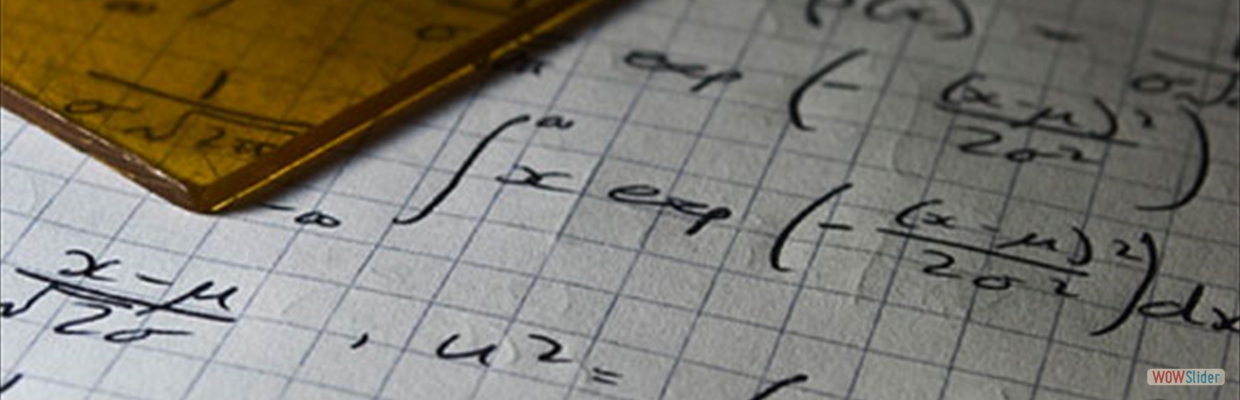 exp (- (x-μ)² / 2σ²)
1 / σ√2π
∫ ∞ -∞ x exp (- (x-μ)² / 2σ²) dx
x-μ / √2σ , u2 =
WOWSlider